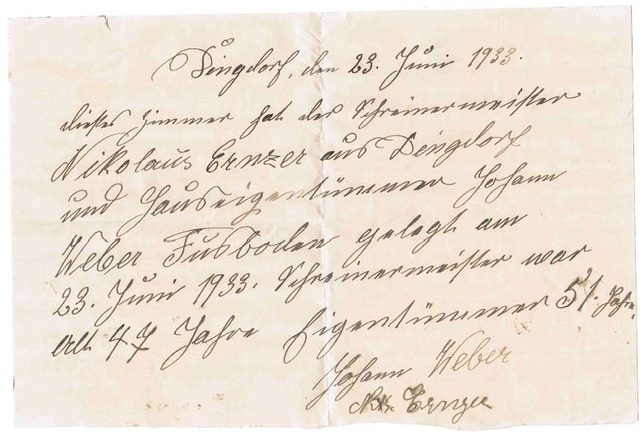 Dingdorf, den 23. Juni 1933.
dieses Zimmer hat der Schreinermeister
Nikolaus Ernzer aus Dingdorf
und Hauseigentümmer Johann
Weber Fusboden gelegt am
23. Juni 1933. Schreinermeister war
alt 47 Jahre Eigentümmer 51. Jahre.
Johann Weber
Nik. Ernzer